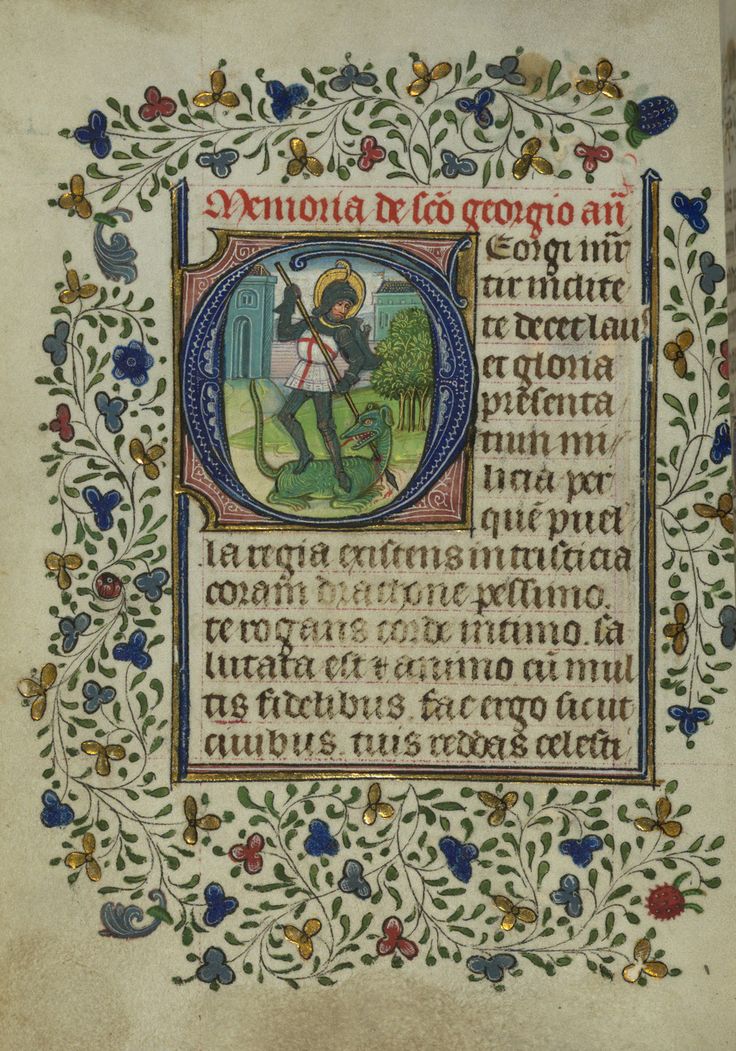 Memoria de scō georgio añ
Eorgi mr̄
tir inclite
te decet laus
et gloria
presenta
tium mi//
licia per
quē puel
la regia existens in tristicia
coram drachone pessimo.
te rogans corde intimo. sa
lutata est & animo cū mul
tis fidelibus. fac ergo sicut
ciuibus. tuis reddas celesti